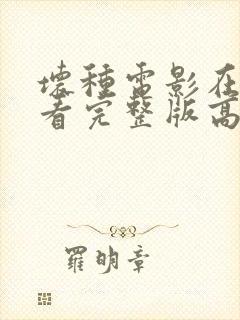 壞種電影在
看完整版高
羅明章